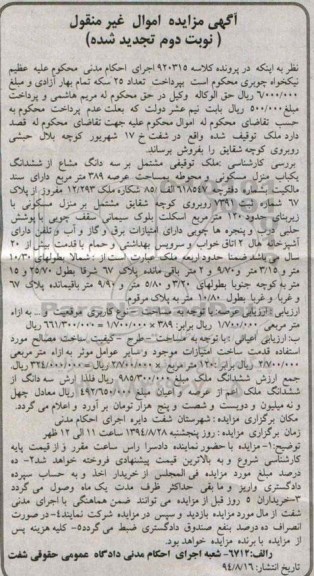 آگهی مزایده اموال غیر منقول
( نوبت دوم تجدید شده)
نظر به اینکه در پرونده کلاسه ۹۲۰۳۱۵ اجرای احکام مدنی محکوم علیه عظیم
نیکخواه چوبری محکوم است بپرداخت تعداد ۲۵ سکه تمام بهار آزادی و مبلغ
۶/۰۰۰/۰۰۰ ریال حق الوکاله وکیل در حق محکوم له مریم هاشمی و پرداخت
مبلغ ۵۰۰/۰۰۰ ریال بابت نیم عشر دولت که بعلت عدم پرداخت محکوم به
حسب تقاضای محکوم له اموال محکوم علیه جهت تقاضای محکوم له قصد
دارد ملک توقیف شده واقع در شفت خ ۱۷ شهریور کوچه بلال حبشی
روبروی کوچه شقایق را بفروش برساند.
بررسی کارشناسی :ملک توقیفی مشتمل بر سه دانگ مشاع از ششدانگ
یکباب منزل مسکونی و محوطه بمساحت عرصه ۳۸۹ متر مربع دارای سند
مالکیت بشماره دفترچه ۶۱۸۵۴۷ الف /۸۵ شکاره ملک ۱۲/۲۹۳ مفروز از پلاک
۶۷ شماره ثبتی ۷۳۹۱ روبروی کوچه شقایق مشتمل بر منزل مسکونی با
زیربنای حدود ۱۲۰ متر مربع اسکلت بلوک سیمانی سقف چوبی با پوشش
حلبی درب و پنجره ها چوبی دارای امتیازات برق و گاز و آب و تلفن دارای
آشپزخانه هال ۲ اتاق خواب و سرویس بهداشتی و حمام با قدمت بیش از ۲۰
سال می باشد ضمنا حدود اربعه ملک عبارت است از : شمالا بطولهای ۱۰/۳۰
متر و ۳/۱۵ متر و ۹/۷۰ و ۲ متر باقی مانده پلاک ۶۷ شرقا بطول ۲۵/۷۰ و ۱۵
متر به کوچه جنوبا بطولهای ۳/۲۰ و ۵/۸۰ متر و ۹/۹۰ متر باقیمانده پلاک ۶۷
و غربا و غربا بطول ۱۰/۸۰ متر به پلاک مرقوم.
ارزیابی :ارزیابی عرصه :با توجه به مساحت - نوع کاربری موقعیت و... به ازاء
متر مربعی ۱/۷۰۰/۰۰۰ ریال برابر: ۳۸۹ × ۱/۷۰۰/۰۰۰ = ۶۶۱/۳۰۰/۰۰۰ ریال
ب: ارزیابی اعیانی :با توجه به مساحت - طرح - کیفیت ساخت مصالح مورد
استفاده قدمت ساخت امتیازات موجود و سایر عوامل موثر به ازاء متر مربعی
۲/۷۰۰/۰۰۰ ریال برابر: ۱۲۰ متر مربع × ۲/۷۰۰/۰۰۰ = ۳۲۴/۰۰۰/۰۰۰ ریال
جمع ارزش ششدانگ ملک مبلغ ۹۸۵/۳۰۰/۰۰۰ ریال فلذا ارش سه دانگ از
ششدانگ ملک اعم از عرصه و اعیان مبلغ ریال معادل چهل
و نه میلیون و دویست و شصت و پنج هزار تومان بر آورد و اعلام می گردد.
مکان برگزاری مزایده : شهرستان شفت دایره اجرای احکام مدنی
زمان برگزاری مزایده : روز پنجشنبه ۱۳۹۴/۸/۲۸ ساعت ۱۱ الی ۱۲ ظهر
توضیح:۱- مزایده با حضور نماینده دادسرا راس ساعت مقرر و از قیمت پایه
کارشناسی شروع و به بالاترین قیمت پیشنهادی فروخته خواهد شد۲- ده
درصد مبلغ مورد مزایده فی المجلس از خریدار اخذ و به حساب سپرده
دادگستری واریز و ما بقی حداکثر ظرف مدت یک ماه وصول می گردد
۳-خریداران ۵ روز قبل از مزایده می توانند ضمن هماهنگی با اجرای مدنی
شفت از مال مورد مزایده بازدید و سپس در مزایده شرکت نمایند۴- در صورت
انصراف ده درصد بنفع صندوق دادگستری ضبط می گردد۵- کلیه هزینه پس
از مزایده با برنده مزایده خواهد بود.
رالف:۶۷۱۲- شعبه اجرای احکام مدنی دادگاه عمومی حقوقی شفت
تاریخ انتشار: ۹۴/۸/۱۶